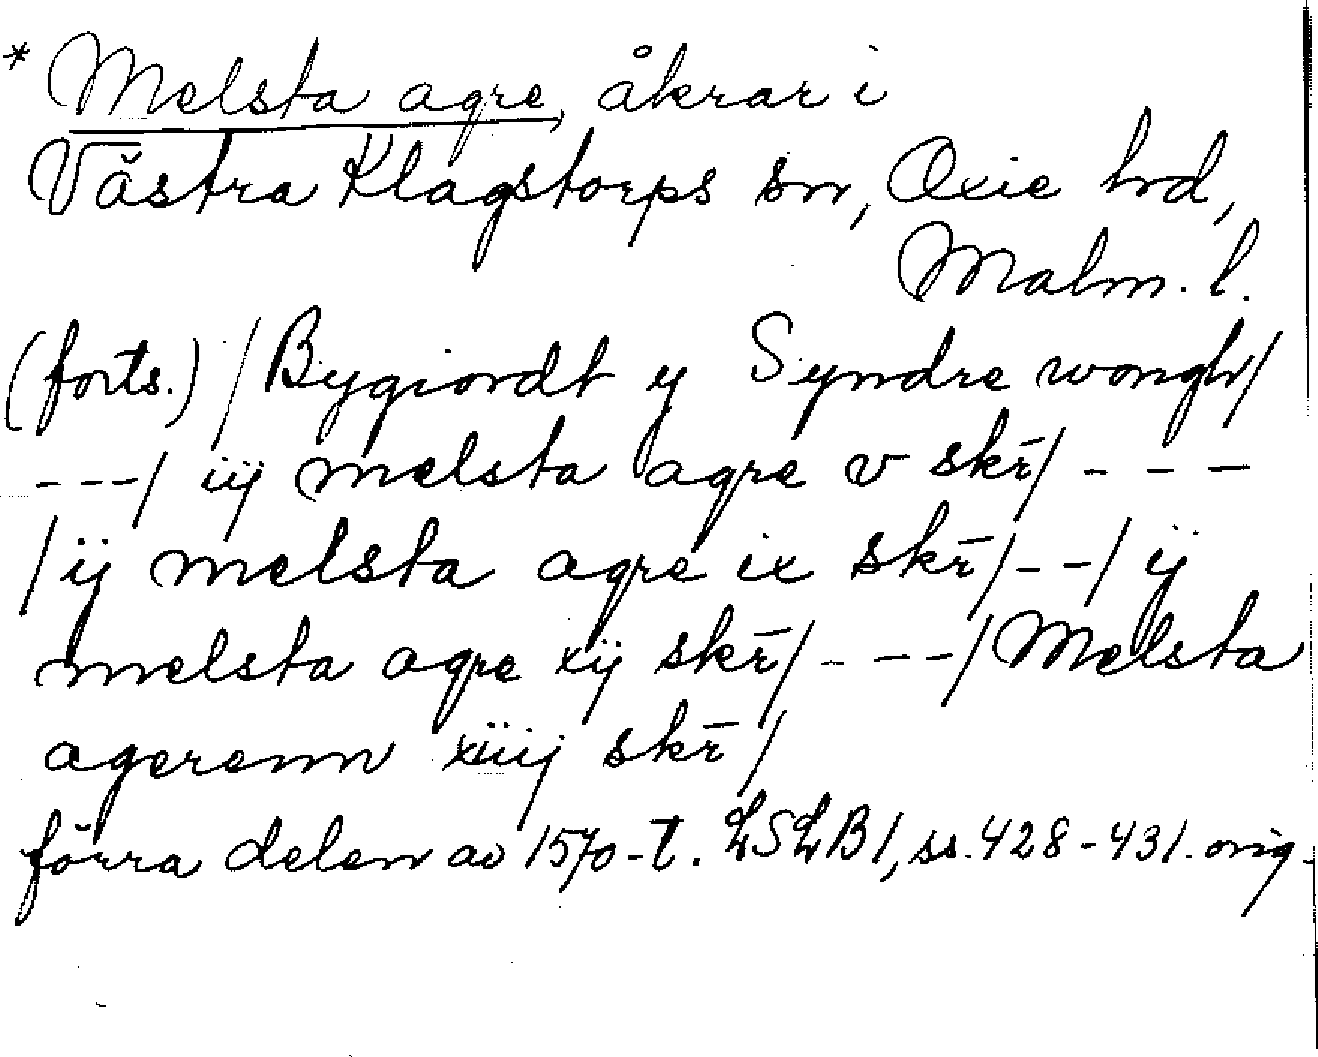 * Melsta agre, åkrar i
Västra Klagstorps sn, Oxie hd,
Malm. l.
(forts.) / Bygiordt y Syndre wongh/
---/ iij melsta agre v skr̄/ - - -
/ij melsta agre ix skr̄/--/ ij
melsta agre xij skr̄/---/Melsta
agerenn xiiij skr̄/
förra delen av 1570-t. LSLB1, ss. 428-431. orig.